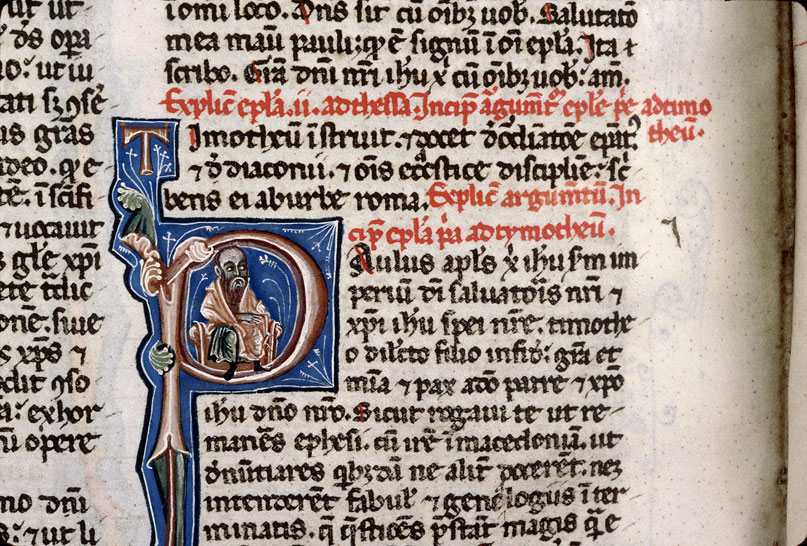 ut ut
ds opa
o: ut iu
tati sz ɔse
us gr̄as
ideo. qͥ e
te. ī sc̄ifi
⁊ uocauit
s glē xp̄i
ete t̄lic
onē. siue
s xp̄s ⁊
dit ɔso
a: exhor
rū opere
mo dn̄i
s: ⁊ ut li
ī om̄i loco. Dn̄s sit cū oīb; uob̄. Salutatō
mea manu pauli: qͥ ē signū ī om̄i ep̄la. Ita
scribo. Gr̄a dn̄i nr̄i ih̄u x̄ cū oīb; uob̄. am̄.
Explic̄ ep̄la .ii. ad thessa. Incip̄ argum̄t̄ ep̄le p̄e ad timo
theū.
Timotheū īstruit. ⁊ docet
⁊ d̄ diaconii. ⁊ om̄is eccl̄estice discipline: sc̄
bens ei ab urbe roma. Explic̄ argum̄tū. In
cip̄ ep̄la p̄a ad tymotheū.
Paulus apl̄s x̄ ih̄u sm̄ im
periū dī saluatoīs nr̄i ⁊
xp̄i ih̄u spei nr̄e. timothe
o dilc̄to filio in fide: gr̄a et
mīa ⁊ pax a dō patre ⁊ xp̄o
ih̄u dn̄o nr̄o. Sicut rogaui te ut re
manēs ephesi. cū irē ī macedoniā. ut
dn̄untiares qͥb;dā ne alit̄ docerēt. neq;
intenderēt fabul̄ ⁊ genelogus ī ter
minatis. q̄ q̄stiōes p̄stāt magis qͣ e